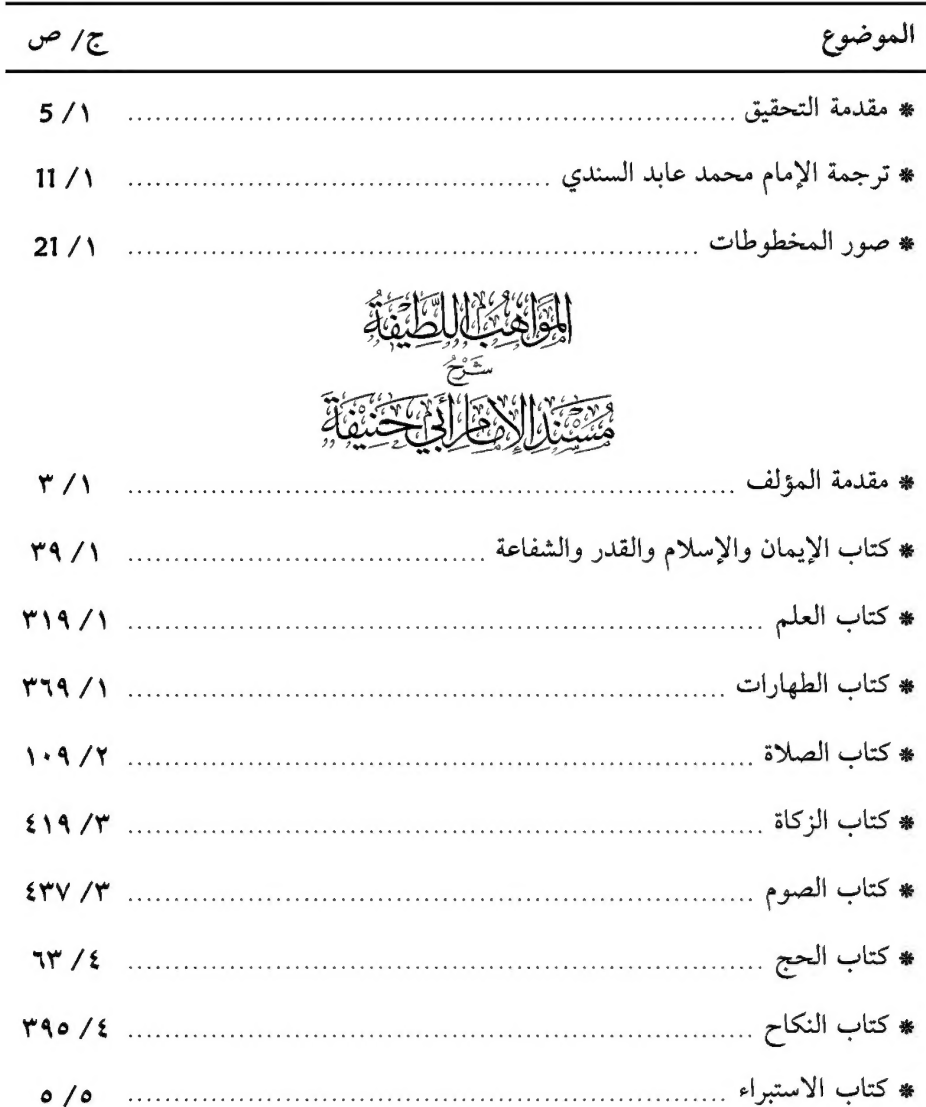 الموضوع ج/ ص
* مقدمة التحقيق ........ ١/ 5
* ترجمة الإمام محمد عابد السندي ........ ١/ 11
* صور المخطوطات ........ ١/ 21
المَوَاهِبُ اللَّطِيْفَةُ
شَرْحُ
مُسْنَدِ الإِمَامِ أَبِي حَنِيْفَةَ
* مقدمة المؤلف ........ ١/ ٣
* كتاب الإيمان والإسلام والقدر والشفاعة ........ ١/ ٣٩
* كتاب العلم ........ ١/ ٣١٩
* كتاب الطهارات ........ ١/ ٣٦٩
* كتاب الصلاة ........ ٢/ ١٠٩
* كتاب الزكاة ........ ٣/ ٤١٩
* كتاب الصوم ........ ٣/ ٤٣٧
* كتاب الحج ........ ٤/ ٦٣
* كتاب النكاح ........ ٤/ ٣٩٥
* كتاب الاستبراء ........ ٥/ ٥